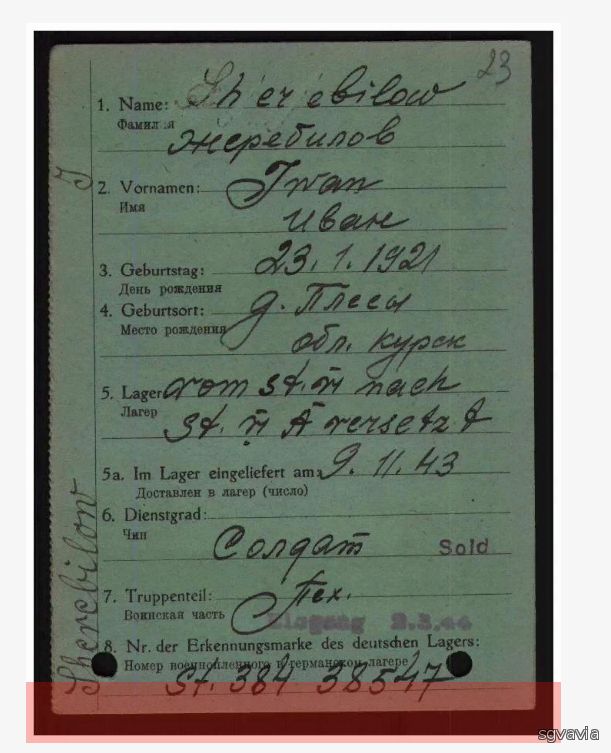 23
1. Name: Sherebilow
Фамилия
Жеребилов
2. Vornamen: Iwan
Имя
Иван
3. Geburtstag: 23.1.1921
День рождения
4. Geburtsort: д. Плесы
Место рождения
обл. Курск
5. Lager vom St. VI nach
Лагер
St. VI A versetzt
5a. Im Lager eingeliefert am: 9.11.43
Доставлен в лагер (число)
6. Dienstgrad:
Чин
Солдат Sold.
7. Truppenteil: Пех.
Воинская часть
Eingang 2.3.44
8. Nr. der Erkennungsmarke des deutschen Lagers:
Номер военнопленного в германском лагере
St. 384 38547
Sherebilow
sgvavia